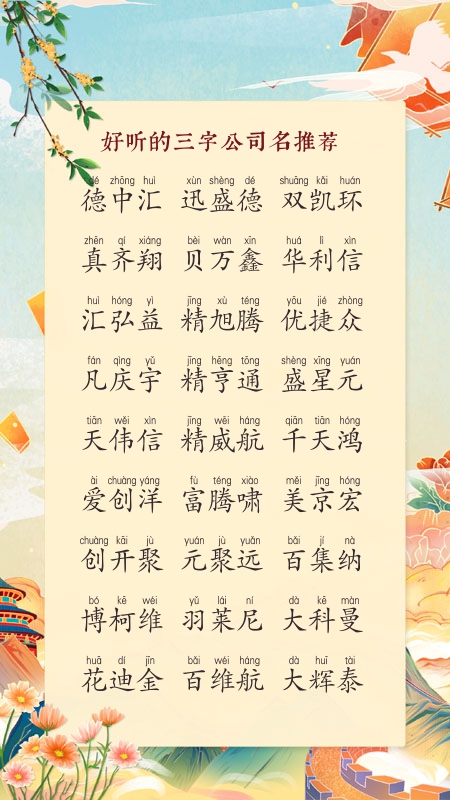 好听的三字公司名推荐
dé zhōng huì xùn shèng dé shuāng kǎi huán
德中汇 迅盛德 双凯环
zhēn qí xiáng bèi wàn xīn huá lì xìn
真齐翔 贝万鑫 华利信
huì hóng yì jīng xù téng yōu jié zhòng
汇弘益 精旭腾 优捷众
fán qìng yǔ jīng hēng tōng shèng xīng yuán
凡庆宇 精亨通 盛星元
tiān wěi xìn jīng wēi háng qiān tiān hóng
天伟信 精威航 千天鸿
ài chuàng yáng fù téng xiào měi jīng hóng
爱创洋 富腾啸 美京宏
chuàng kāi jù yuán jù yuǎn bǎi jí nà
创开聚 元聚远 百集纳
bó kē wéi yǔ lái ní dà kē màn
博柯维 羽莱尼 大科曼
huā dí jīn bǎi wéi háng dà huī tài
花迪金 百维航 大辉泰